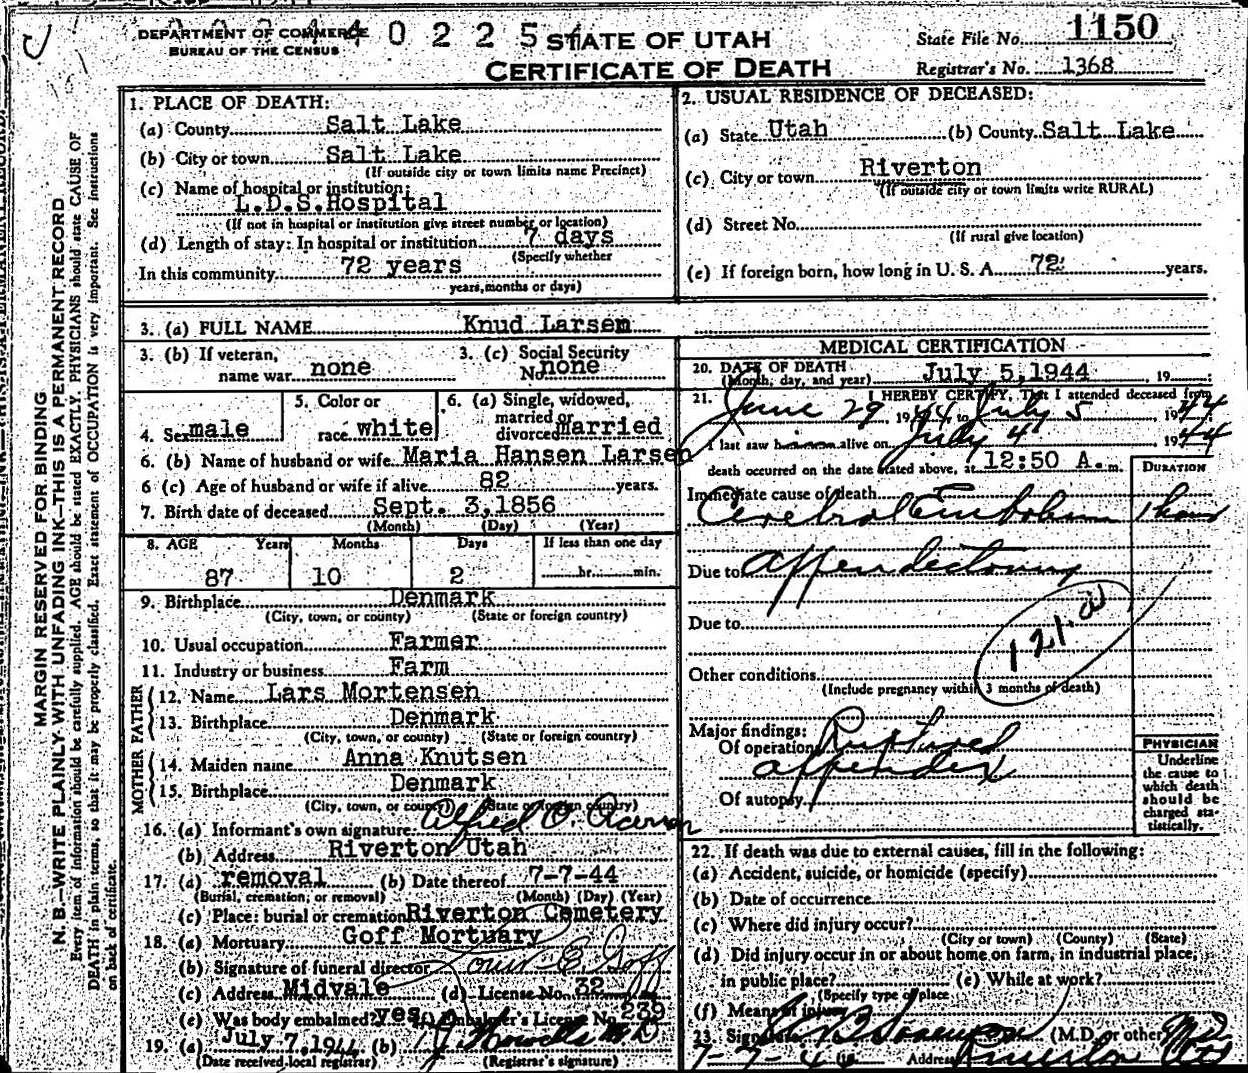 DEPARTMENT OF COMMERCE
BUREAU OF THE CENSUS
40225
STATE OF UTAH
CERTIFICATE OF DEATH
State File No. 1150
Registrar's No. 1368
MARGIN RESERVED FOR BINDING
N. B.—WRITE PLAINLY WITH UNFADING INK—THIS IS A PERMANENT RECORD
Every item of information should be carefully supplied. AGE should be stated EXACTLY. PHYSICIANS should state CAUSE OF
DEATH in plain terms, so that it may be properly classified. Exact statement of OCCUPATION is very important. See instructions
on back of certificate.
1. PLACE OF DEATH:
(a) County Salt Lake
(b) City or town Salt Lake
(If outside city or town limits name Precinct)
(c) Name of hospital or institution:
L.D.S.Hospital
(If not in hospital or institution give street number or location)
(d) Length of stay: In hospital or institution 7 days
(Specify whether
In this community 72 years
years, months or days)
2. USUAL RESIDENCE OF DECEASED:
(a) State Utah (b) County Salt Lake
(c) City or town Riverton
(If outside city or town limits write RURAL)
(d) Street No.
(If rural give location)
(e) If foreign born, how long in U. S. A. 72 years.
3. (a) FULL NAME Knud Larsen
3. (b) If veteran, name war none
3. (c) Social Security No. none
4. Sex male
5. Color or race white
6. (a) Single, widowed, married or divorced Married
6. (b) Name of husband or wife Maria Hansen Larsen
6 (c) Age of husband or wife if alive 82 years.
7. Birth date of deceased Sept. 3,1856
(Month) (Day) (Year)
8. AGE Years Months Days If less than one day
87 10 2 hr. min.
9. Birthplace Denmark
(City, town, or county) (State or foreign country)
10. Usual occupation Farmer
11. Industry or business Farm
FATHER
12. Name Lars Mortensen
13. Birthplace Denmark
(City, town, or county) (State or foreign country)
MOTHER
14. Maiden name Anna Knutsen
15. Birthplace Denmark
(City, town, or county) (State or foreign country)
16. (a) Informant's own signature Alfred O.
(b) Address Riverton Utah
17. (a) removal (b) Date thereof 7-7-44
(Burial, cremation, or removal) (Month) (Day) (Year)
(c) Place: burial or cremation Riverton Cemetery
18. (a) Mortuary Goff Mortuary
(b) Signature of funeral director E Goff
(c) Address Midvale (d) License No. 32
(e) Was body embalmed? yes (f) Embalmer's License No. 239
19. (a) July 7,1944 (b) M D
(Date received local registrar) (Registrar's signature)
MEDICAL CERTIFICATION
20. DATE OF DEATH
(Month, day, and year) July 5,1944 , 19
21. I HEREBY CERTIFY, That I attended deceased from
June 29, 1944 to July 5, 1944
I last saw him alive on July 4, 1944
death occurred on the date stated above, at 12:50 A.m.
DURATION
Immediate cause of death
Cerebral Embolism 1 hour
Due to appendectomy
Due to
121.a
Other conditions
(Include pregnancy within 3 months of death)
Major findings:
Of operation Ruptured
appendix
Of autopsy
PHYSICIAN
Underline
the cause to
which death
should be
charged sta-
tistically.
22. If death was due to external causes, fill in the following:
(a) Accident, suicide, or homicide (specify)
(b) Date of occurrence
(c) Where did injury occur?
(City or town) (County) (State)
(d) Did injury occur in or about home, on farm, in industrial place,
in public place? (e) While at work?
(Specify type of place
(f) Means of injury
23. Signature Sorenson (M.D. or other) M.D.
7-7-44 Address Riverton Utah